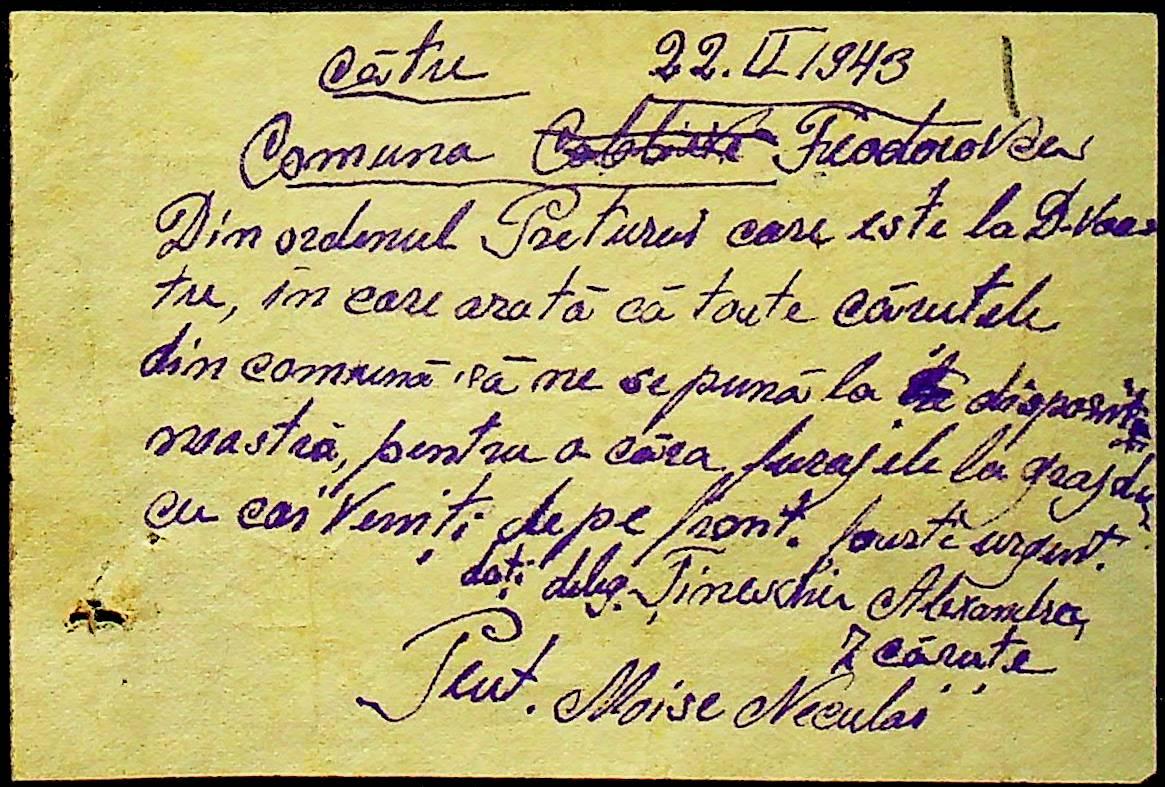 Către 22.II 1943
Comuna Feodorovca
Din ordinul Preturei care este la D-voas
tre, în care arată că toate cărutele
din comună să ne se pună la dispozitia
noastră, pentru a căra furajele la grajdu
cu cai Veniți depe front. foarte urgent.
dați deleg. Alexandru
7 căruțe
Plut. Moise Neculai